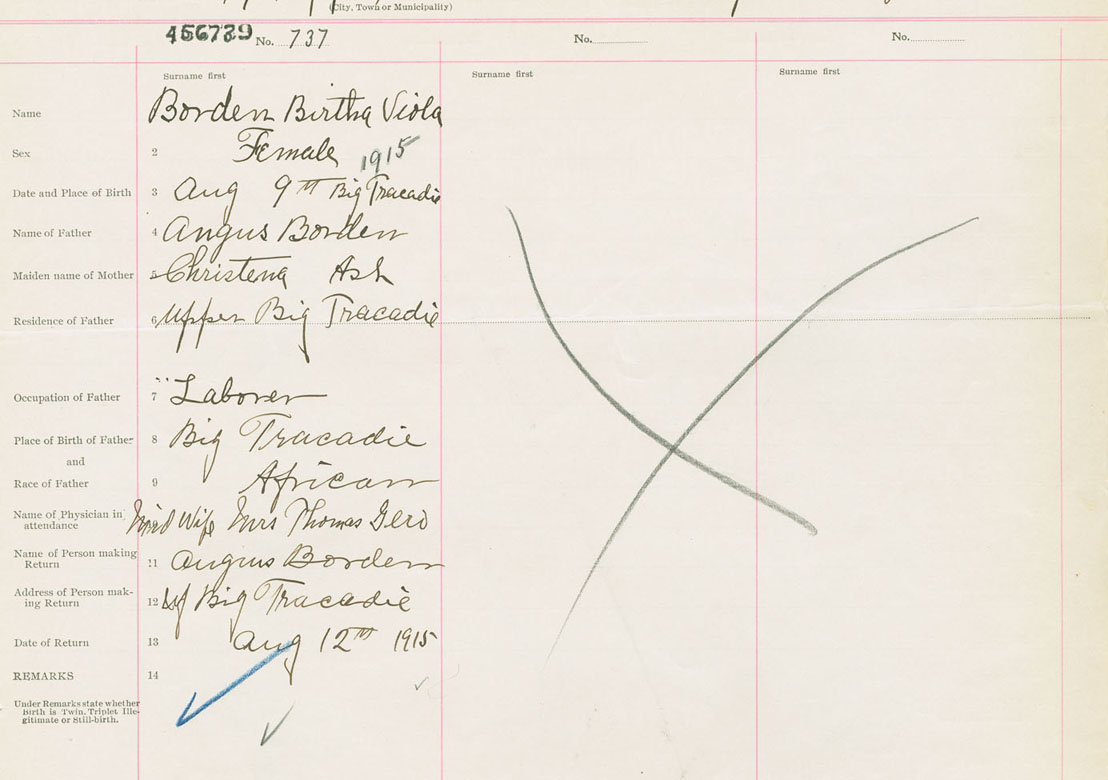 (City, Town or Municipality)
456739 No. 737 No. No.
Surname first Surname first Surname first
Name Borden Birtha Viola
Sex 2 Female 1915
Date and Place of Birth 3 Aug 9th Big Tracadie
Name of Father 4 Angus Borden
Maiden name of Mother 5 Christena Ash
Residence of Father 6 Upper Big Tracadie
Occupation of Father 7 Laborer
Place of Birth of Father 8 Big Tracadie
and
Race of Father 9 African
Name of Physician in Mid Wife Mrs Thomas Gero
attendance
Name of Person making 11 Angus Borden
Return
Address of Person mak- 12 Big Tracadie
ing Return
Date of Return 13 Aug 12th 1915
REMARKS 14
Under Remarks state whether
Birth is Twin, Triplet Ille-
gitimate or Still-birth.